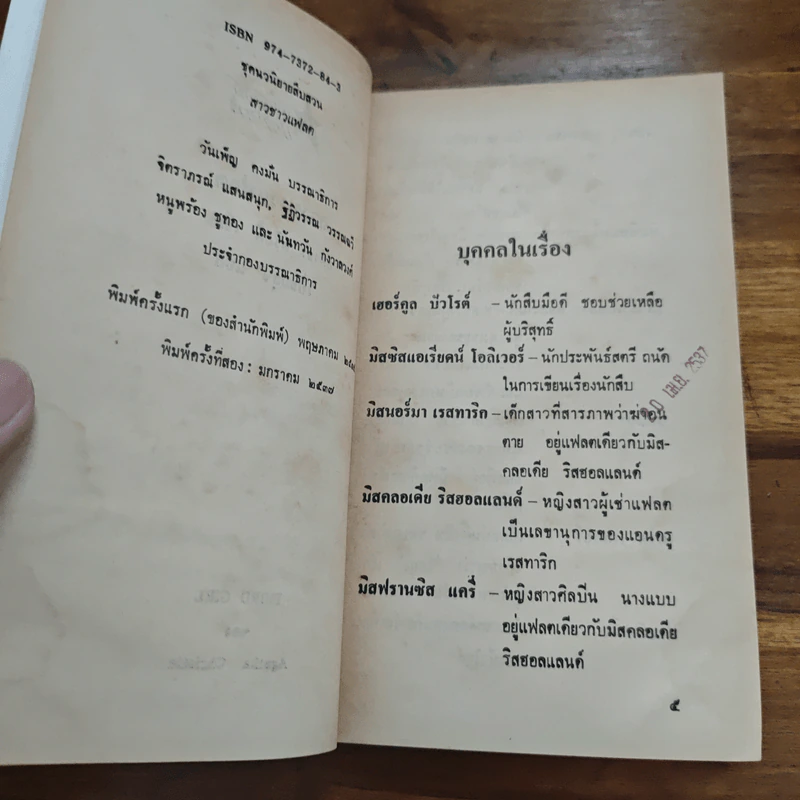 ISBN 974-7372-84-3
ชุดนวนิยายสืบสวน
สาวชาวแฟลต
วันเพ็ญ คงมั่น บรรณาธิการ
จิตราภรณ์ แสนสนุก, ฐิติวรรณ วรรณฉวี
หนูพร้อง ชูทอง และ นันทวัน กังวาลวงศ์
ประจำกองบรรณาธิการ
พิมพ์ครั้งแรก (ของสำนักพิมพ์) พฤษภาคม
พิมพ์ครั้งที่สอง : มกราคม ๒๕๓๗
บุคคลในเรื่อง
เฮอร์คูล ปัวโรต์ – นักสืบมือดี ชอบช่วยเหลือ
ผู้บริสุทธิ์
มิสซิสแอเรียดน์ โอลิเวอร์ – นักประพันธ์สตรี ถนัด
ในการเขียนเรื่องนักสืบ
มิสนอร์มา เรสทาริค – เด็กสาวที่สารภาพว่าฆ่าคน
ตาย อยู่แฟลตเดียวกับมิส-
คลอเดีย ริสฮอลแลนด์
มิสคลอเดีย ริสฮอลแลนด์ – หญิงสาวผู้เช่าแฟลต
เป็นเลขานุการของแอนดรู
เรสทาริก
มิสฟรานซิส แครี่ – หญิงสาวศิลปิน นางแบบ
อยู่แฟลตเดียวกับมิสคลอเดีย
ริสฮอลแลนด์
๕
เม.ย. 2537